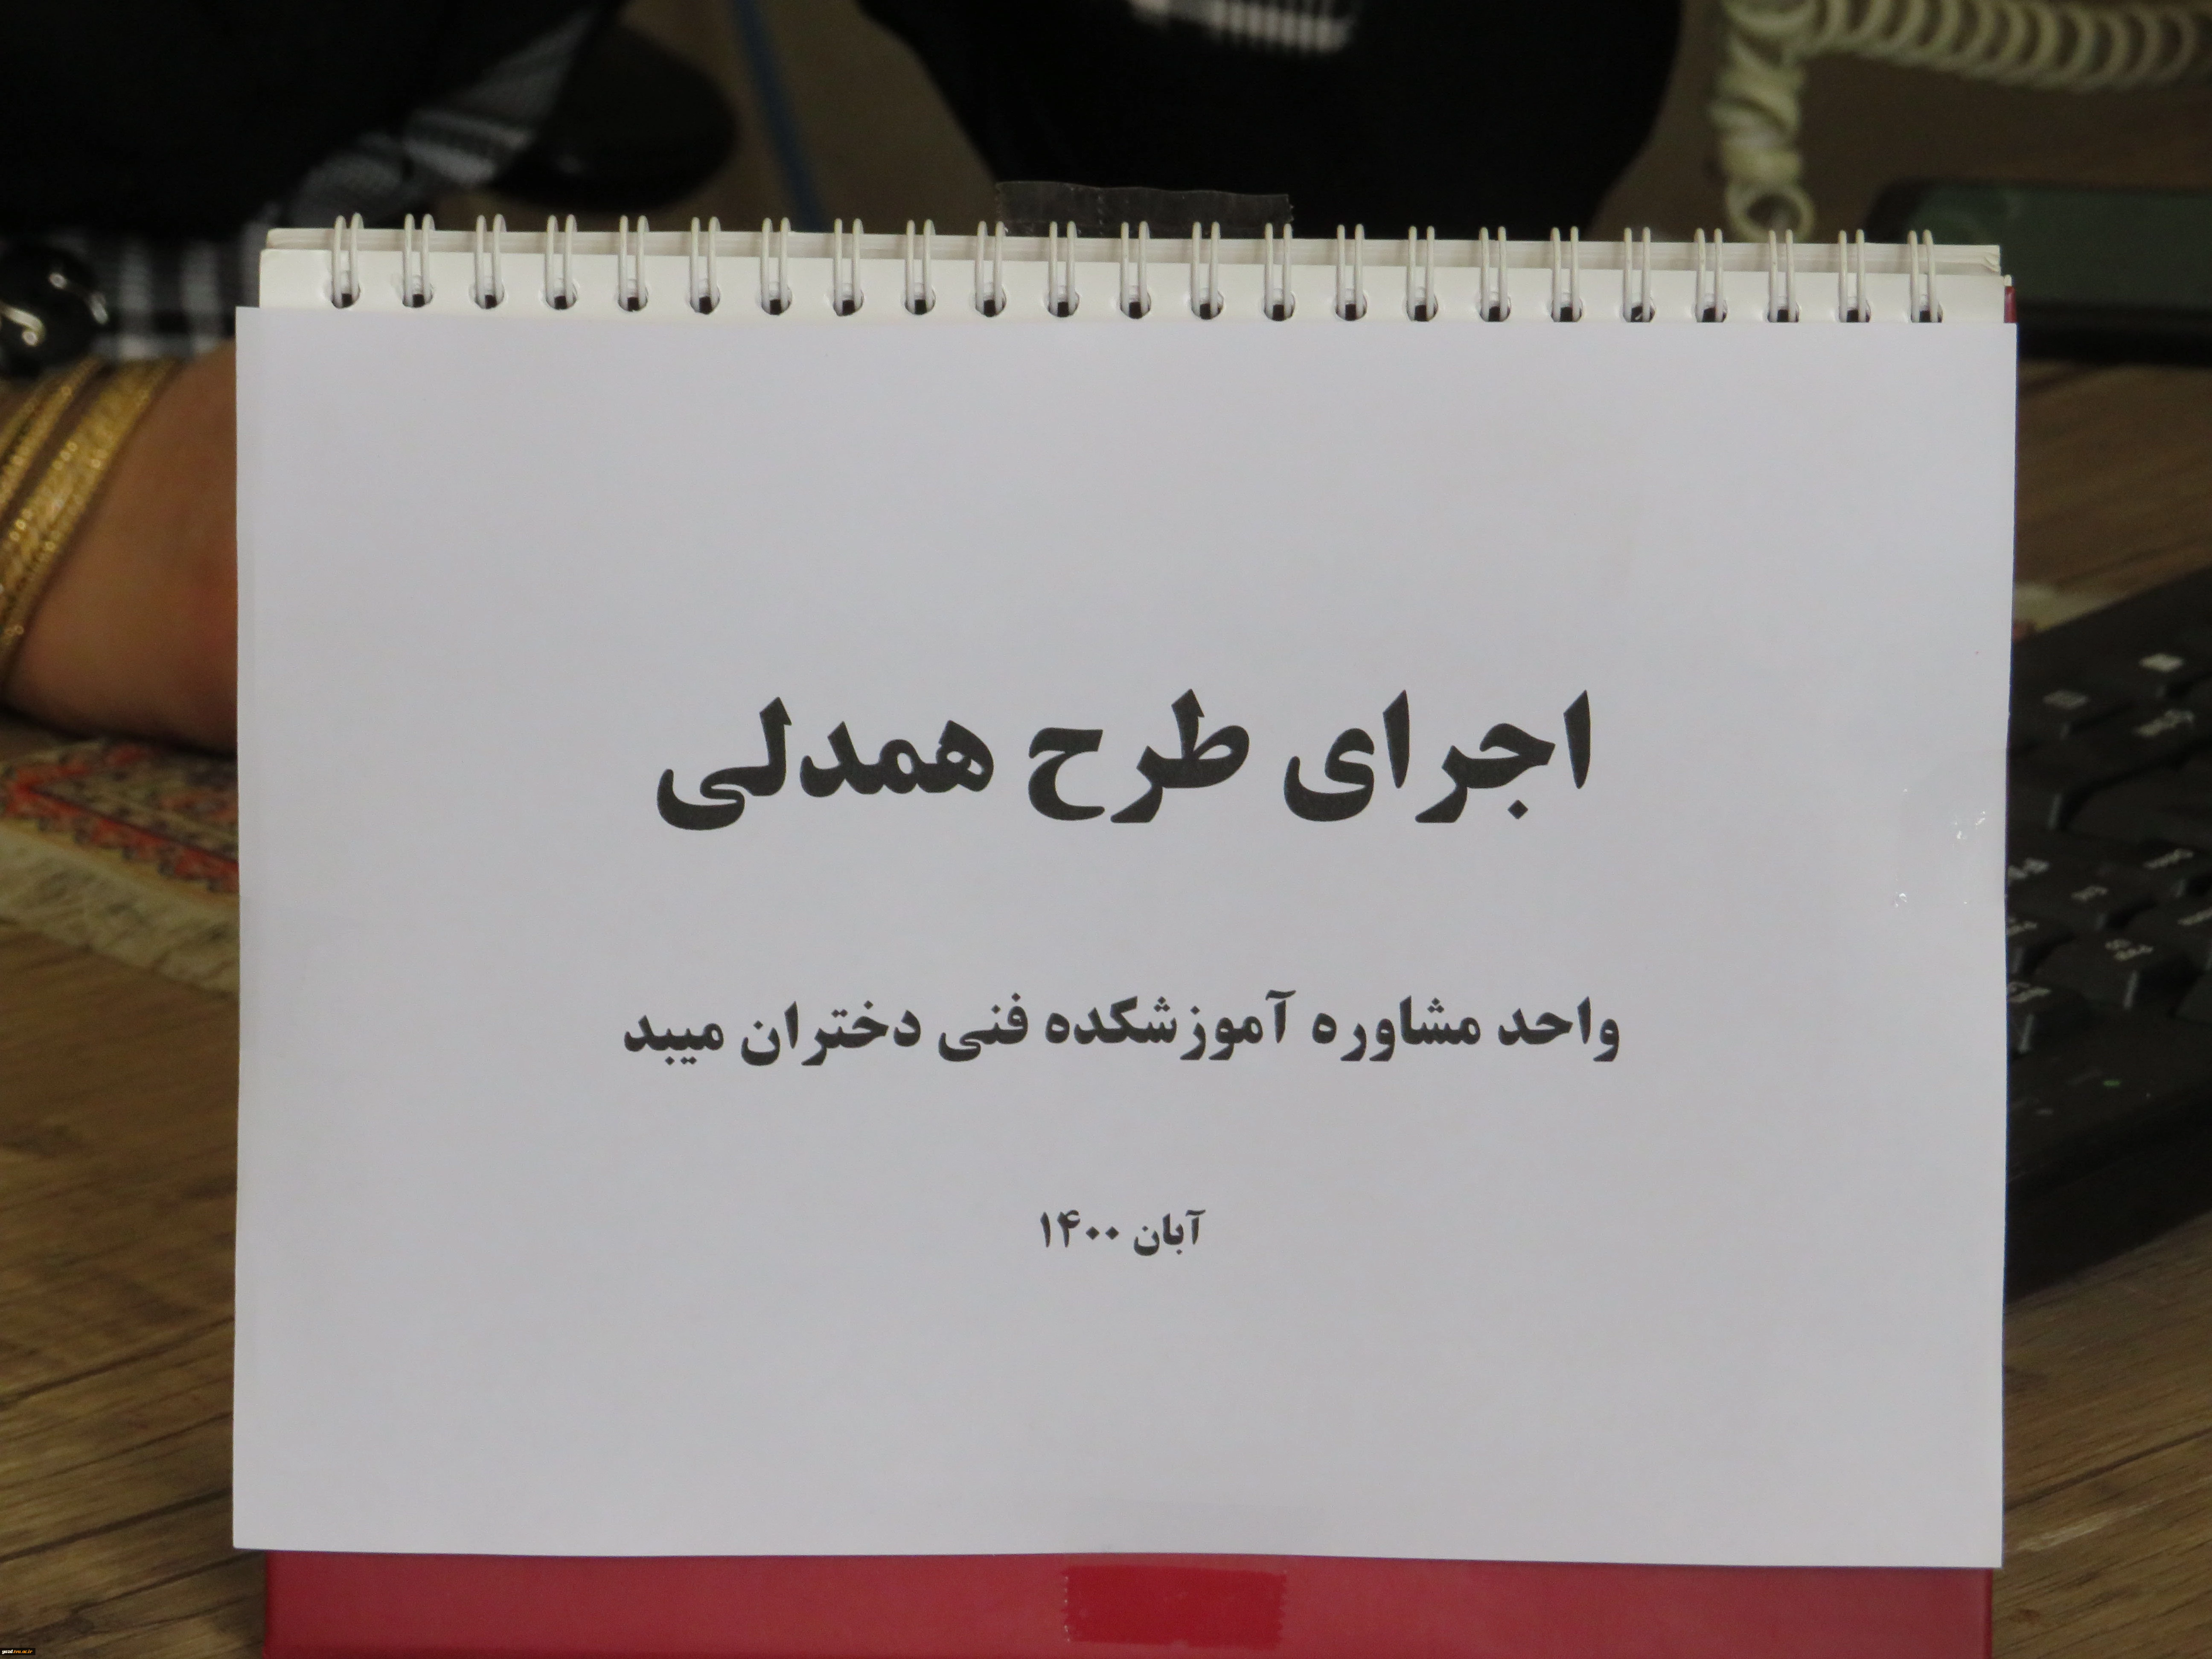 اجرای طرح همدلی
واحد مشاوره آموزشکده فنی دختران میبد
آبان ۱۴۰۰